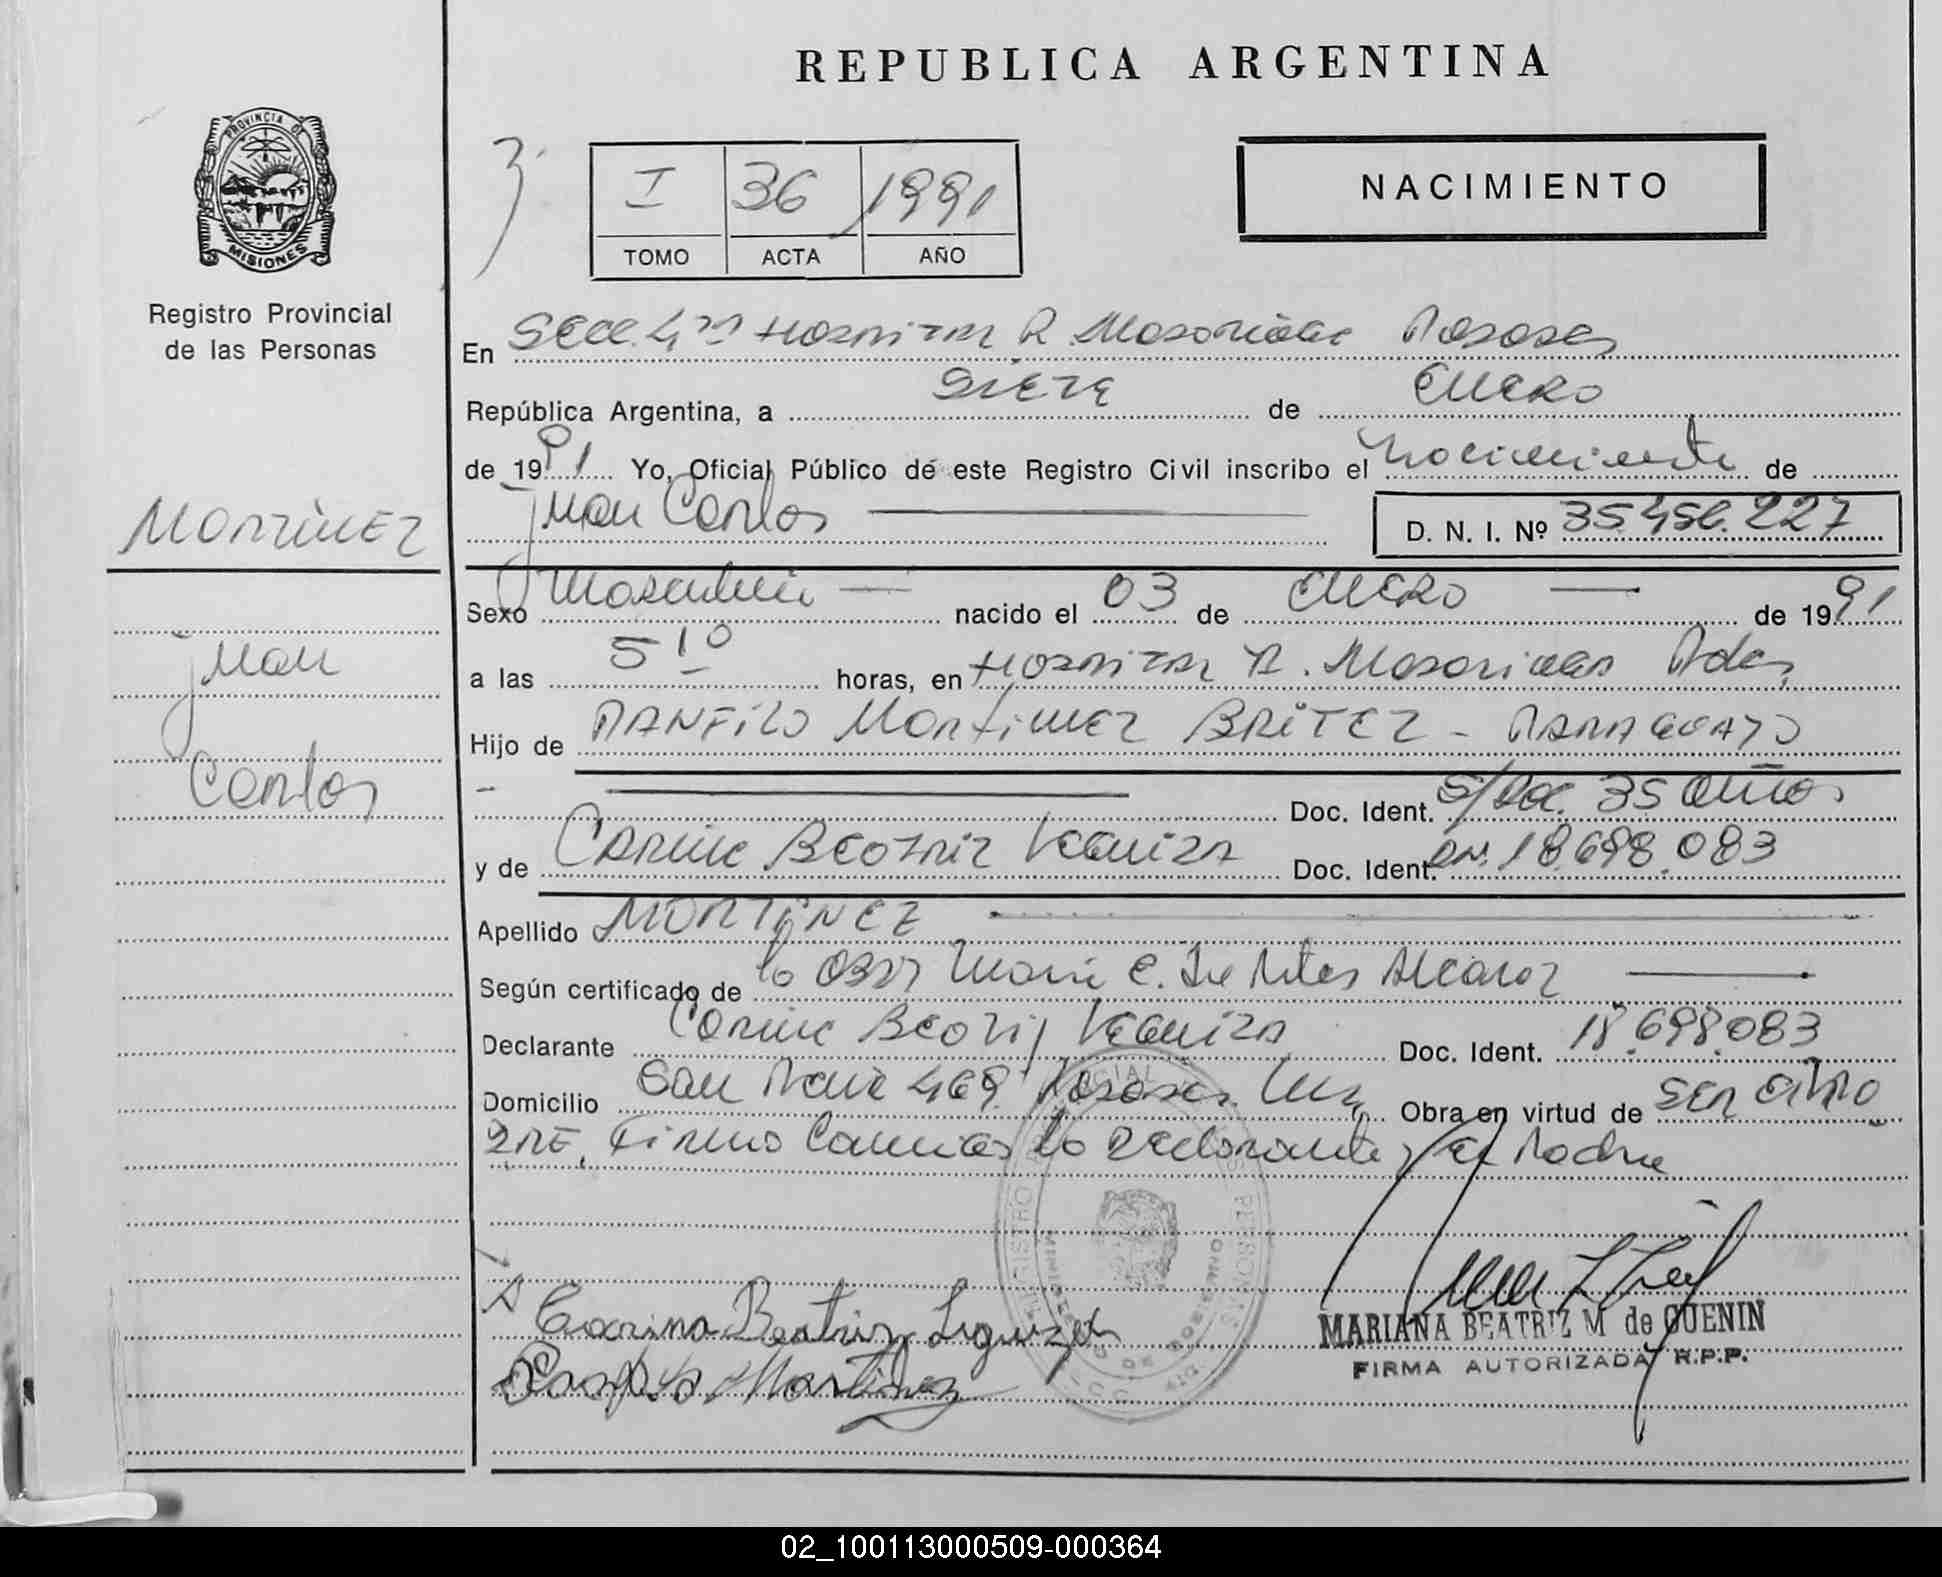 REPUBLICA ARGENTINA
PROVINCIA DE
MISIONES
Registro Provincial
de las Personas
I 36 1991
TOMO ACTA AÑO
NACIMIENTO
En Secc. 4ª Hospital R. Madariaga Posadas
República Argentina, a siete de Enero
de 1991 Yo, Oficial Público de este Registro Civil inscribo el nacimiento de
Juan Carlos D. N. I. Nº 35.456.227
Martinez
Juan
Carlos
Sexo Masculino nacido el 03 de Enero de 1991
a las 5 10 horas, en Hospital R. Madariaga Pdas,
Hijo de Panfilo Martinez Britez - Paraguayo
Doc. Ident. S/Doc. 35 años
y de Carina Beatriz Leguiza Doc. Ident. 18.698.083
Apellido Martinez
Según certificado de la Obst. Maria C.
Declarante Carina Beatriz Leguiza Doc. Ident. 18.698.083
Domicilio San 469 Posadas Mnes Obra en virtud de ser
Firma la Declarante y el Padre
Carina Beatriz Leguiza
Panfilo Martinez
MARIANA BEATRIZ M de GUENIN
FIRMA AUTORIZADA R.P.P.
02_100113000509-000364